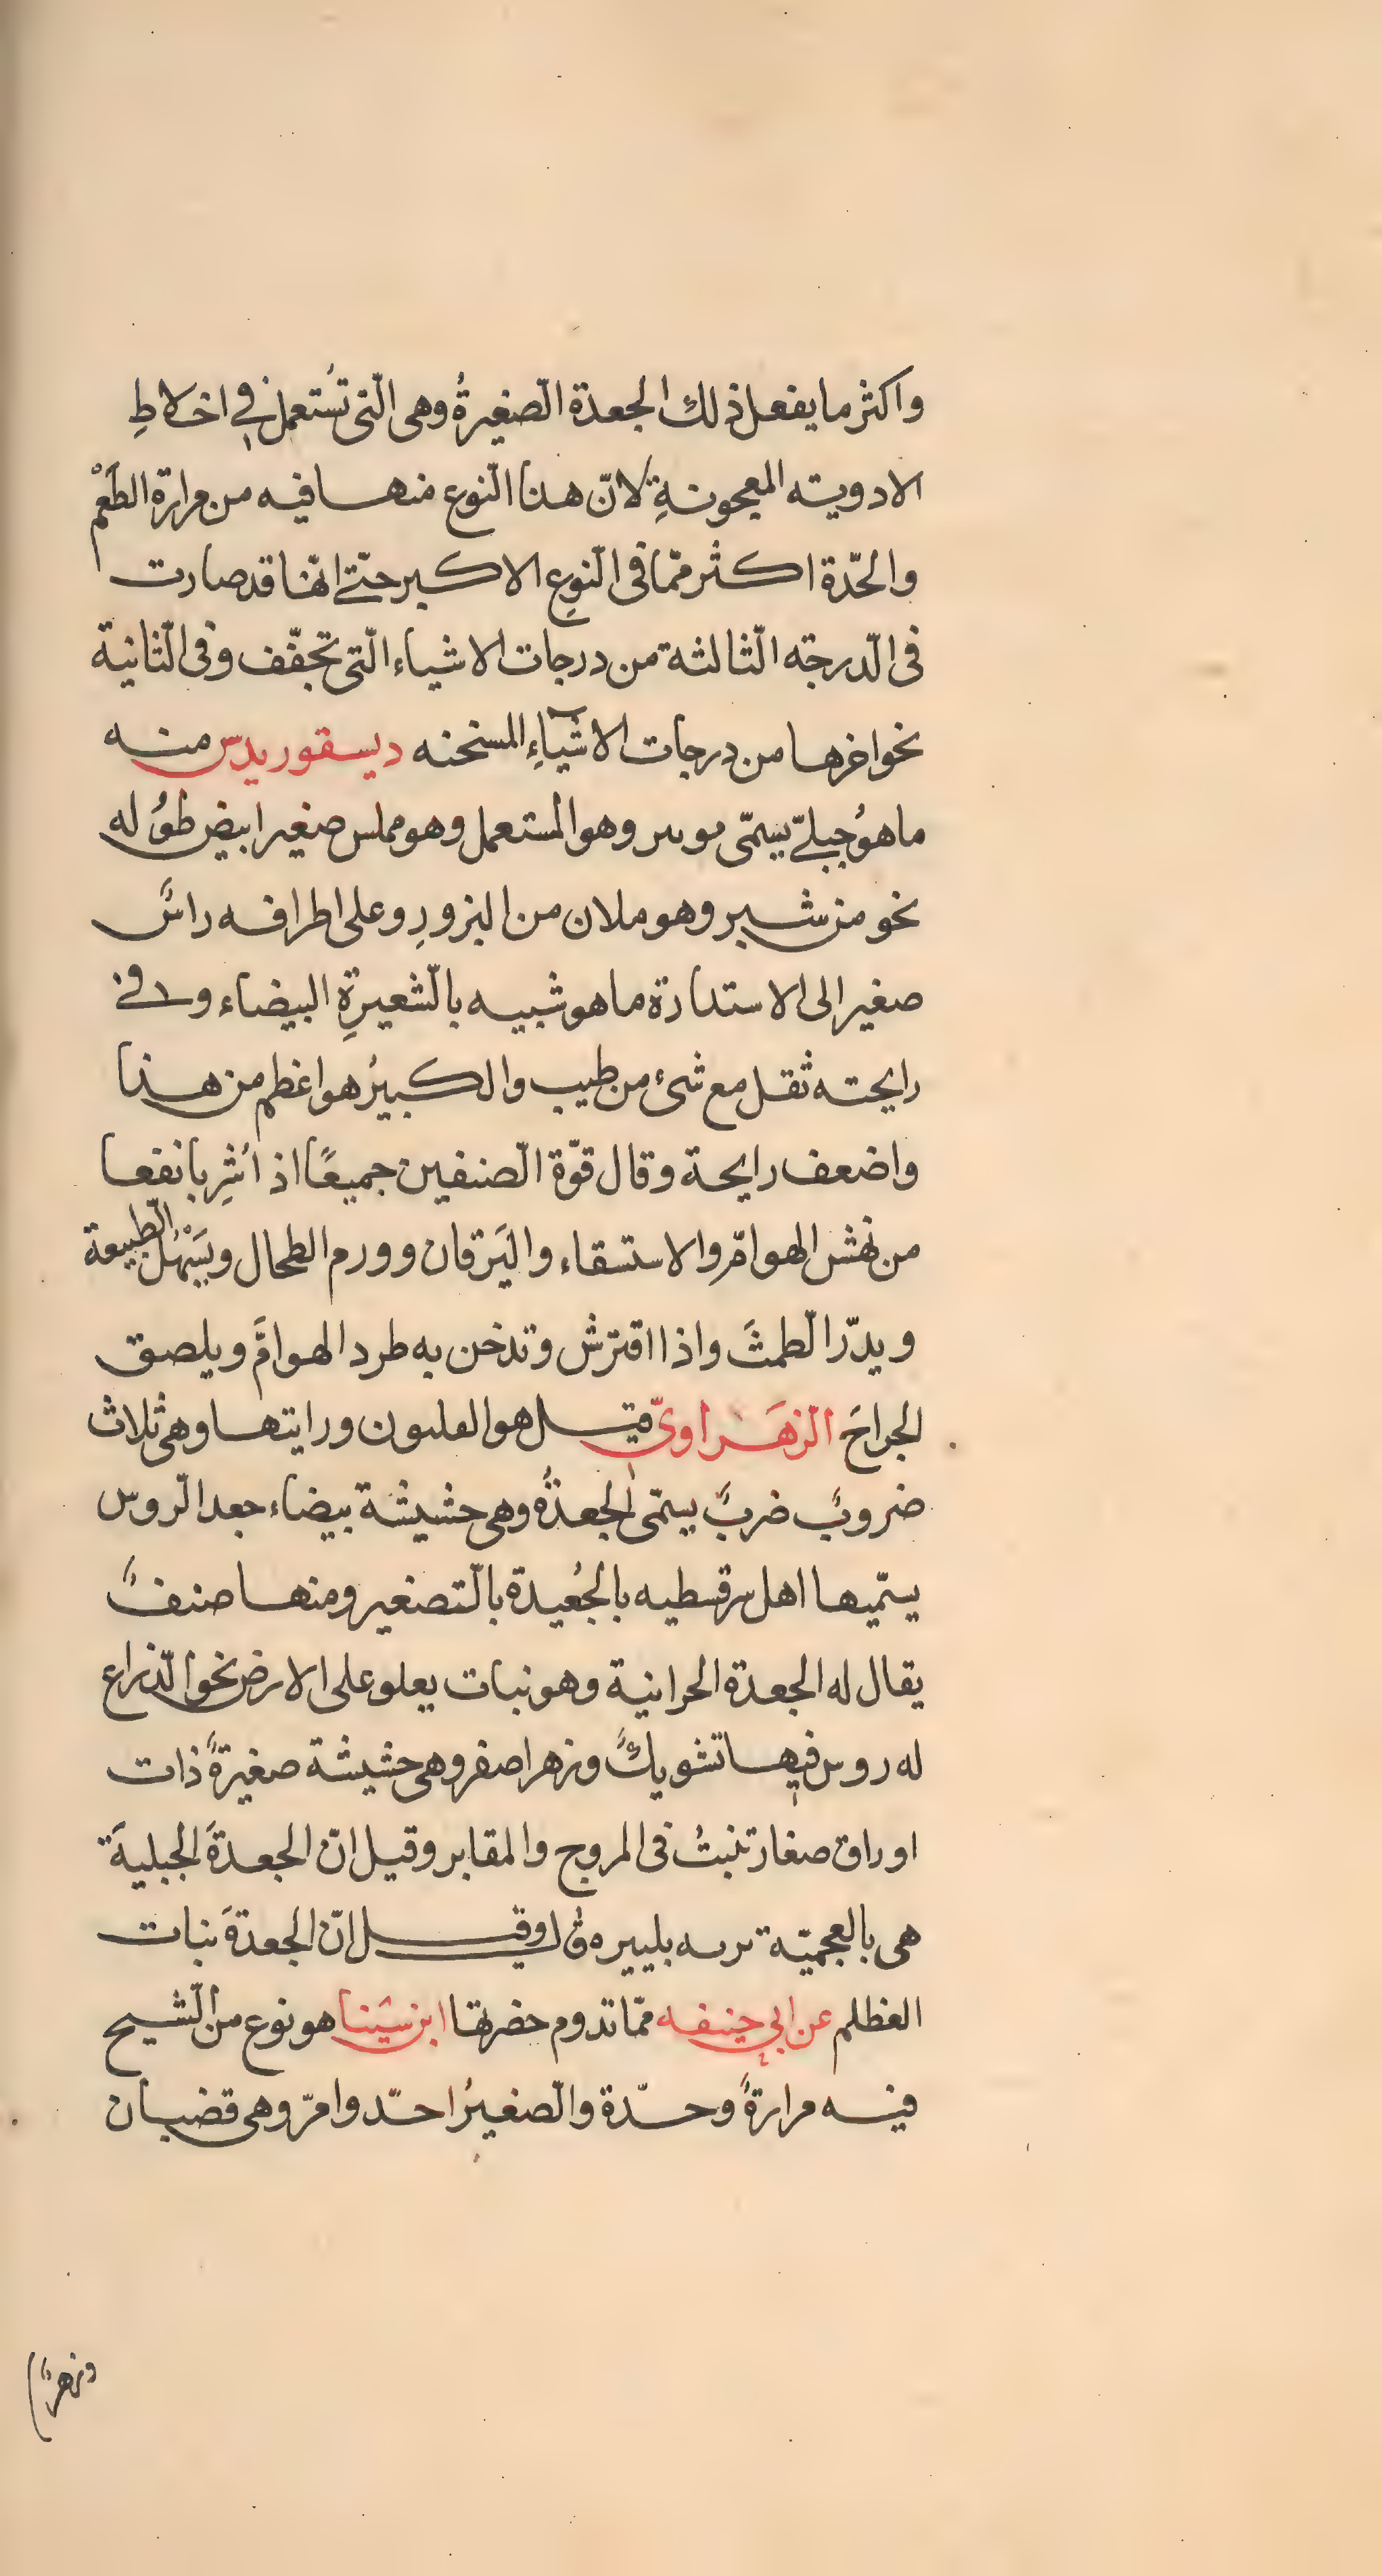 واكثر ما يفعل ذلك الجعدة الصّغيرةُ وهى الّتى تُستعمل فى اخلاطِ
الادويته المعجونةِ لانّ هذا النّوع منها فيه من مرارة الطَعْم
والحّدة اكثر ممّا فى النّوعِ الاكبر حتّى انّها قد صارت
فى الدرجّه الثالثة من درجات الاشياء الّتى تجفّف وفى الثّانية
نحو اخرها من درجات الاشياءِ المسخنه ديسقوريدس منه
ما هوُ جبلىّ يسمّى موىىر وهو المستعمل وهو مملس صغير ابيض طوُله
نحو من شبر وهو ملان من البزورِ وعلى اطرافه راسٌ
صغير الى الاستدارة ما هو شبيه بالشّعيرةِ البيضاء و فى
رايحته ثقل مع شىء من طيب والكبيرُ هو اعظم من هذا
واضعف رايحة وقال قوّة الصّنفين جميعًا اذا شُرِبا نفعا
من نهش الهوامّ والاستسقاء واليَرقان وورم الطحال ويُسَهْلُ الطّبيعة
ويدرّ الطمثَ واذا اقترش وتدخن به طرد الهوامَّ ويلصق
الجراحَ الزهَراوىّ قيل هو العلىون ورايتها وهى ثلاث
ضروبٌ ضربٌ يسمّى الجعدةُ وهى حشيشة بيضاء جعد الرّوس
يسمّيها اهل سرقسطيه بالجُعيدة بالتّصغير ومنها صنفٌ
يقال له الجعدة الحرانية وهو نبات يعلو على الارض نحو الذّراع
له روس فيها تشويكٌ وزهر اصفر وهى حشيشة صغيرةٌ ذات
اوراق صغار تنبتُ فى المروج والمقابر وقيل انّ الجعدةَ الجبليةَ
هى بالعجميّة ىرىه بلييره وقيل انّ الجعدةَ نبات
العظلم عن ابى حنيفه ممّا تدوم خضرتها ابن سَينا هو نوع من الشّيح
فيه مرارةٌ وحدّة والصّغيرُ احدّ وامرّ وهى قضبان
وزهرٌ